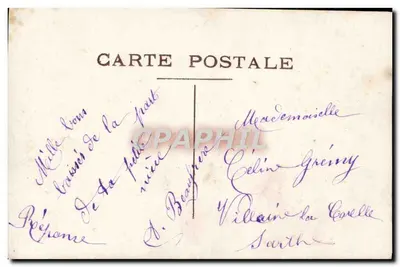 CARTE POSTALE
Mille bons
baisers de la part
de ta petite
nièce
A. Beaufrère
Réponse
Mademoiselle
Célina Grémy
Villaine la Carelle
Sarthe
CPAPHIL